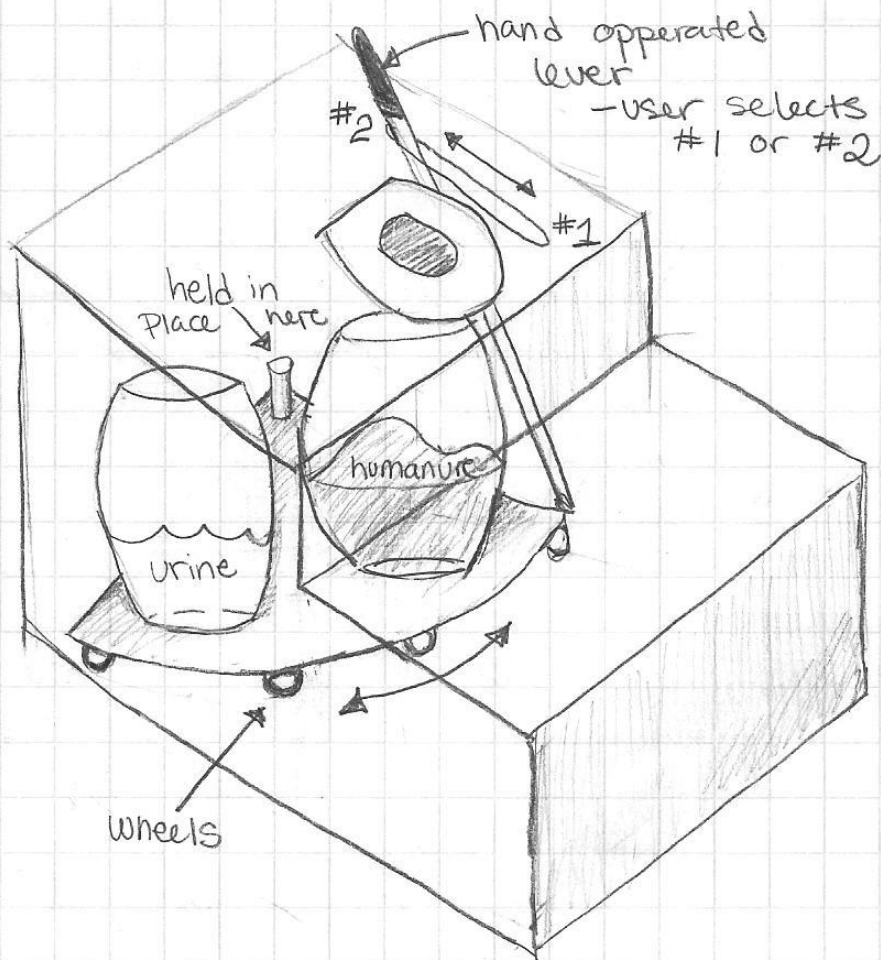 hand opperated
lever
-user selects
#1 or #2
#2
#1
held in
place here
humanure
urine
wheels